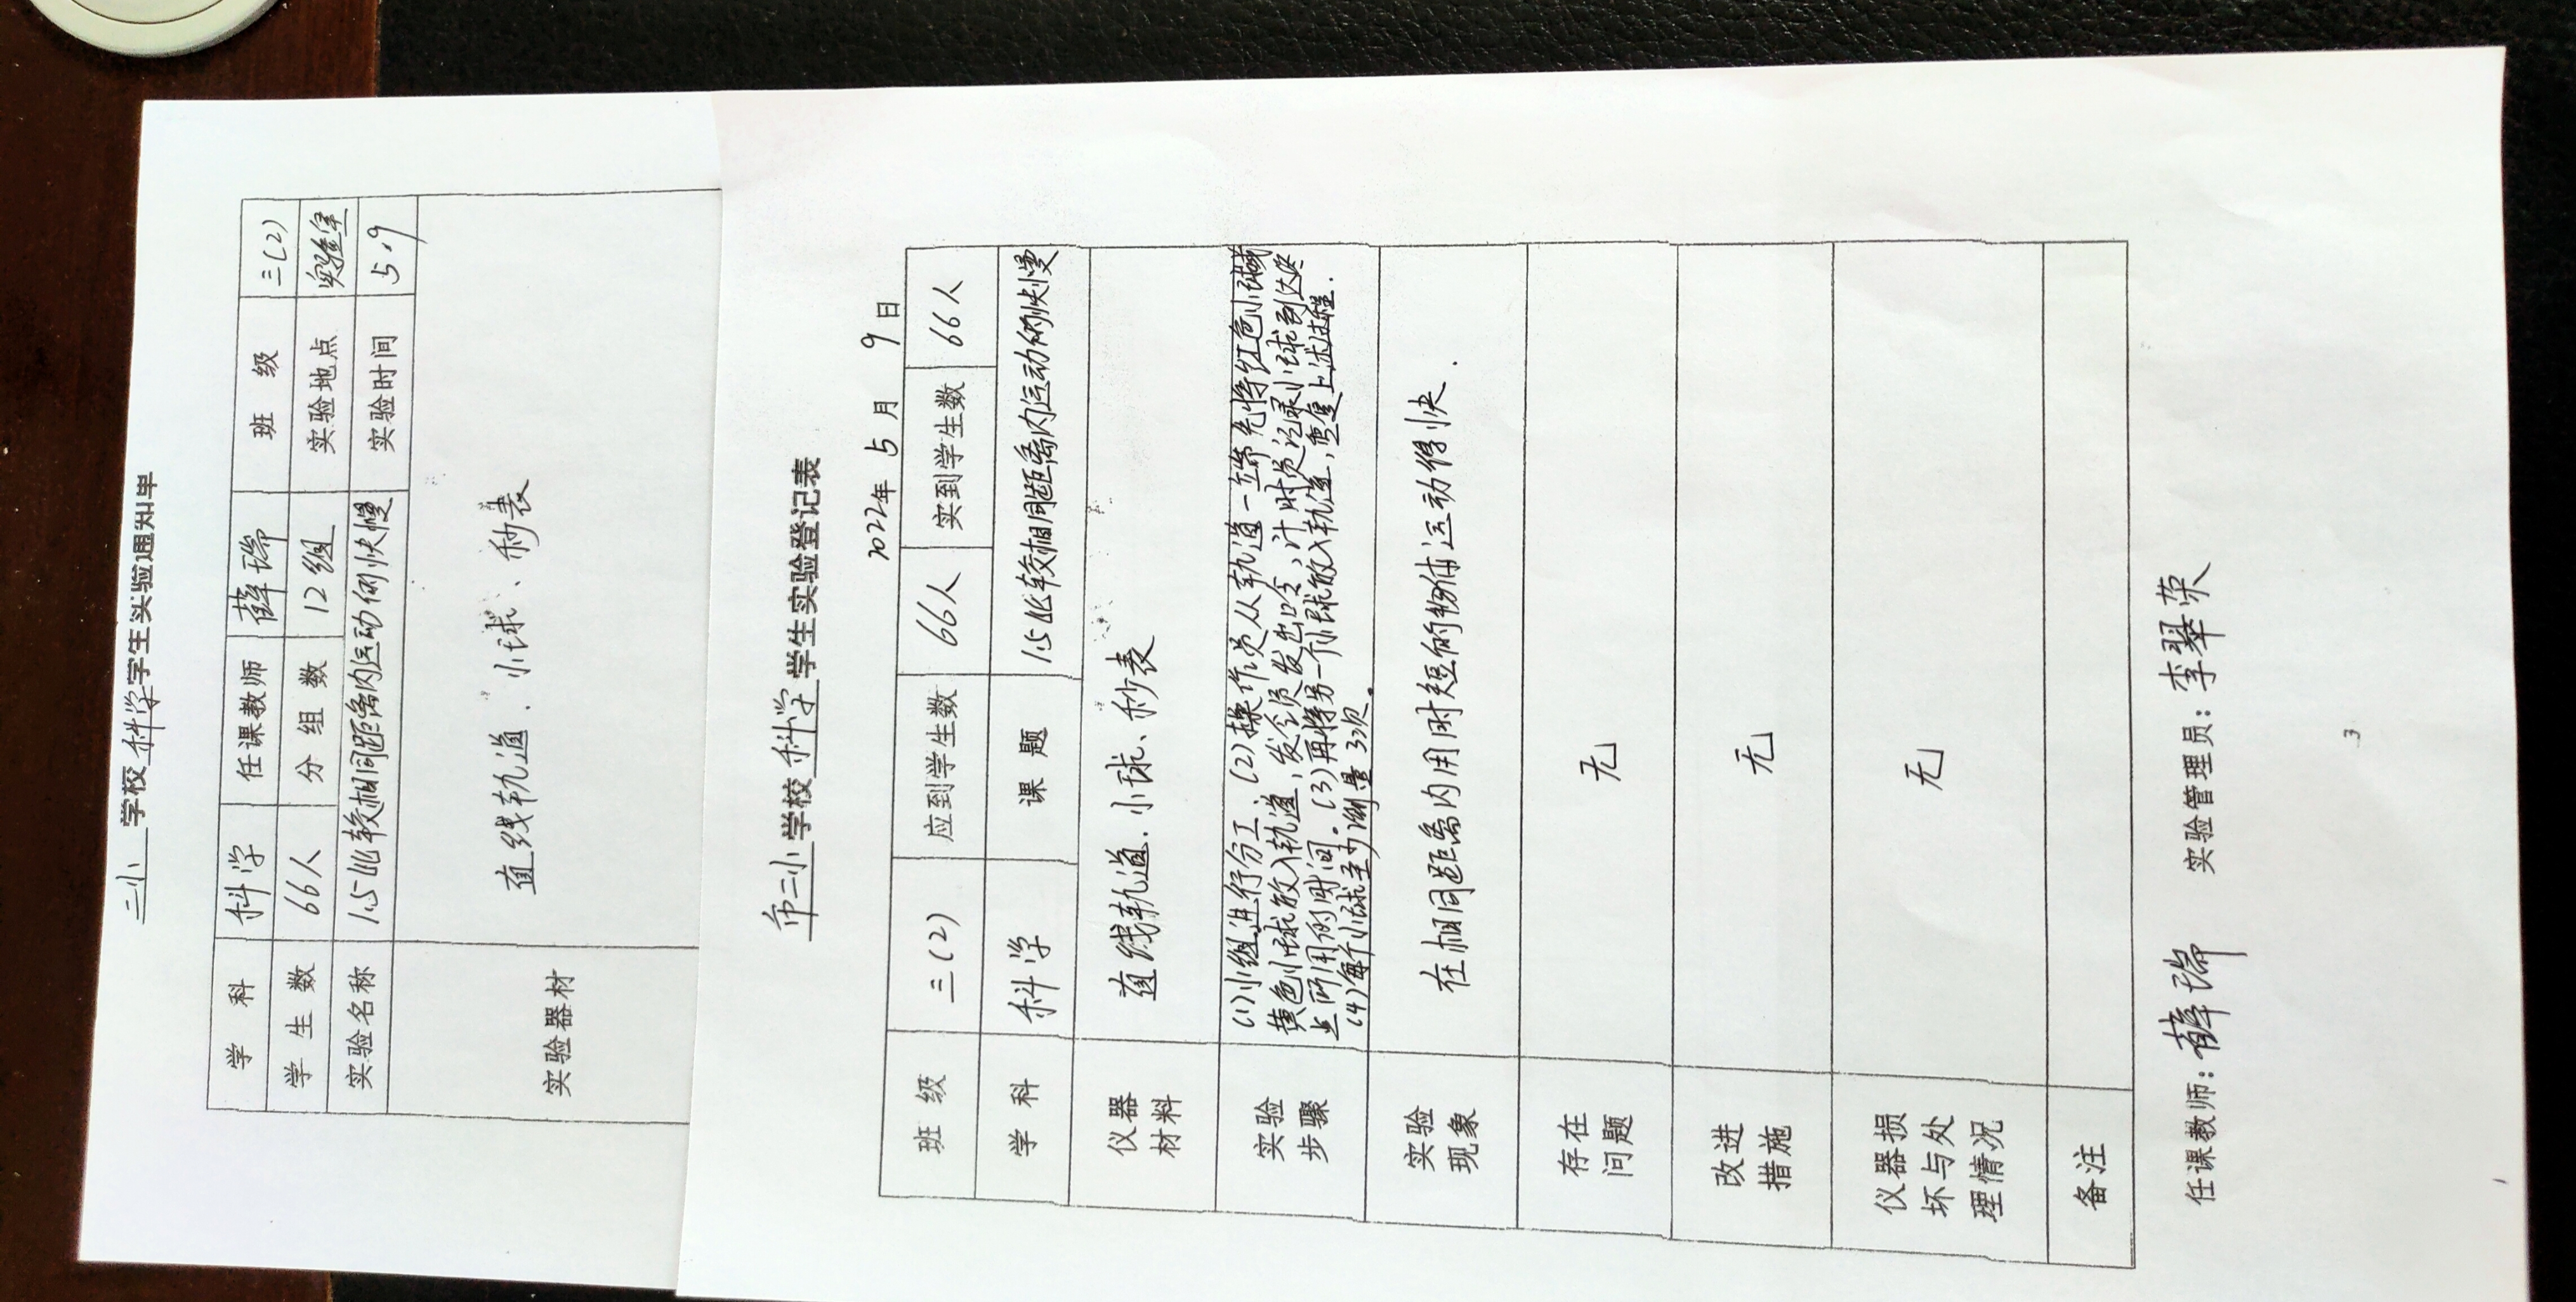 二小 学校 科学 学生实验通知单
学 科 科学 任课教师 薛瑞 班 级 三(2)
学 生 数 66人 分 组 数 12组 实验地点 实验室
实验名称 1.5比较相同距离内运动的快慢 实验时间 5.9
实验器材 直线轨道、小球、秒表
市二小 学校 科学 学生实验登记表
2022年 5 月 9 日
班 级 三(2) 应到学生数 66人 实到学生数 66人
学 科 科学 课 题 1.5比较相同距离内运动的快慢
仪器
材料
直线轨道、小球、秒表
实验
步骤
(1)小组进行分工、(2)操作员从轨道一端先将红色小球或
黄色小球放入轨道,发令员发出口令,计时员记录小球到达终
点所用的时间。(3)再将另一个小球放入轨道,重复上述过程.
(4)每个小球至少测量3次。
实验
现象
在相同距离内用时短的物体运动得快.
存在
问题
无
改进
措施
无
仪器损
坏与处
理情况
无
备注
任课教师:薛瑞 实验管理员:李翠荣
3